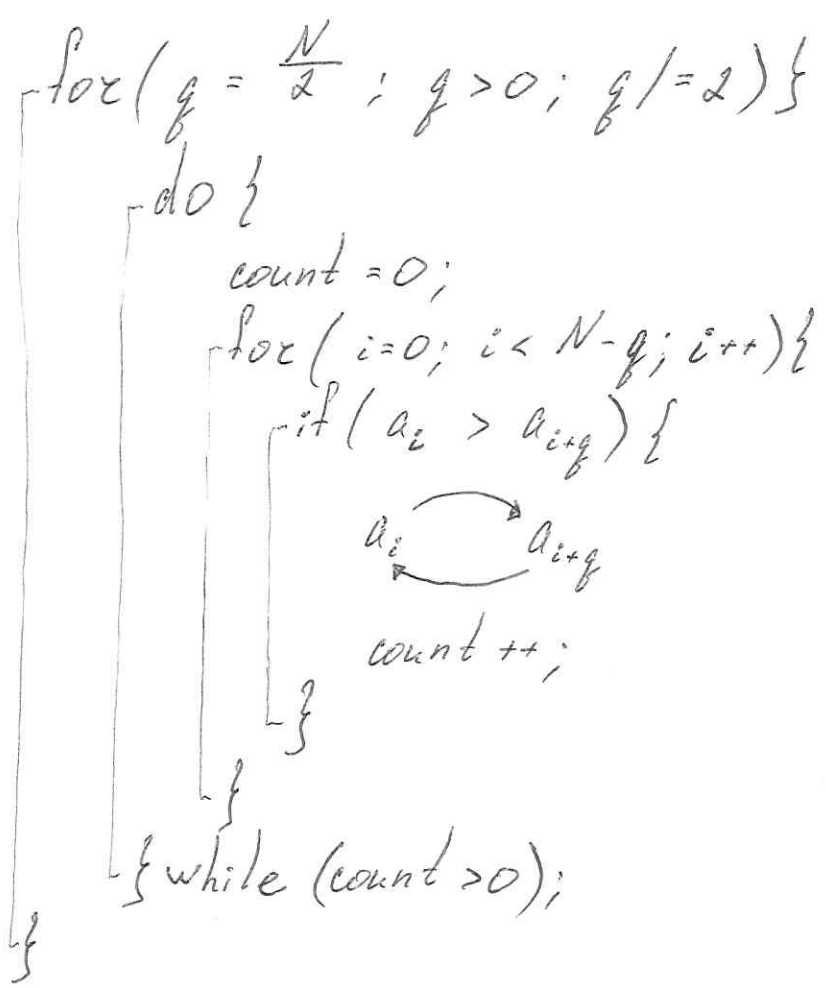 for( q = N/2 ; q > 0; q /= 2) }
do {
count = 0;
for( i=0; i < N-q; i++){
if ( aᵢ > aᵢ₊q) {
aᵢ aᵢ₊q
count ++;
}
}
} while (count >0);
}